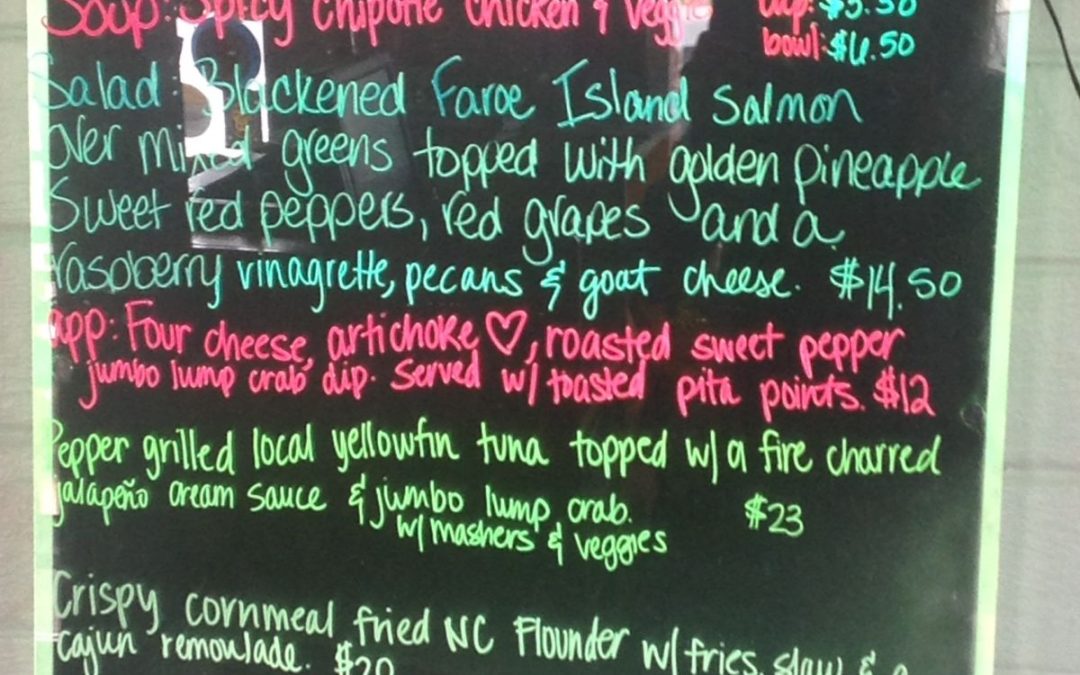 Soup: Spicy chipotle chicken & veggie cup: $5.50
bowl: $6.50
Salad: Blackened Faroe Island salmon
Over mixed greens topped with golden pineapple
Sweet red peppers, red grapes and a
raspberry vinagrette, pecans & goat cheese. $14.50
app: Four cheese, artichoke ♡, roasted sweet pepper
jumbo lump crab dip. Served w/ toasted pita points. $12
Pepper grilled local yellowfin tuna topped w/ a fire charred
jalapeño cream sauce & jumbo lump crab. $23
w/ mashers & veggies
Crispy cornmeal fried NC Flounder w/ fries, slaw & a
Cajun remoulade. $20